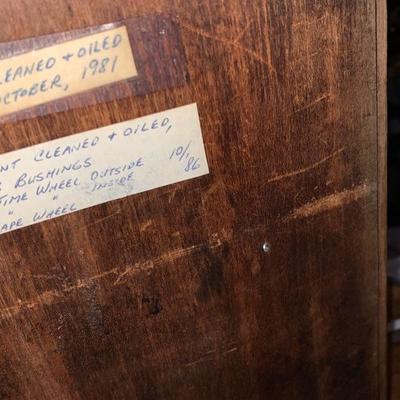 LEANED + OILED
OCTOBER, 1981
NT CLEANED + OILED,
BUSHINGS 10/86
TIME WHEEL OUTSIDE
" " INSIDE
APE WHEEL